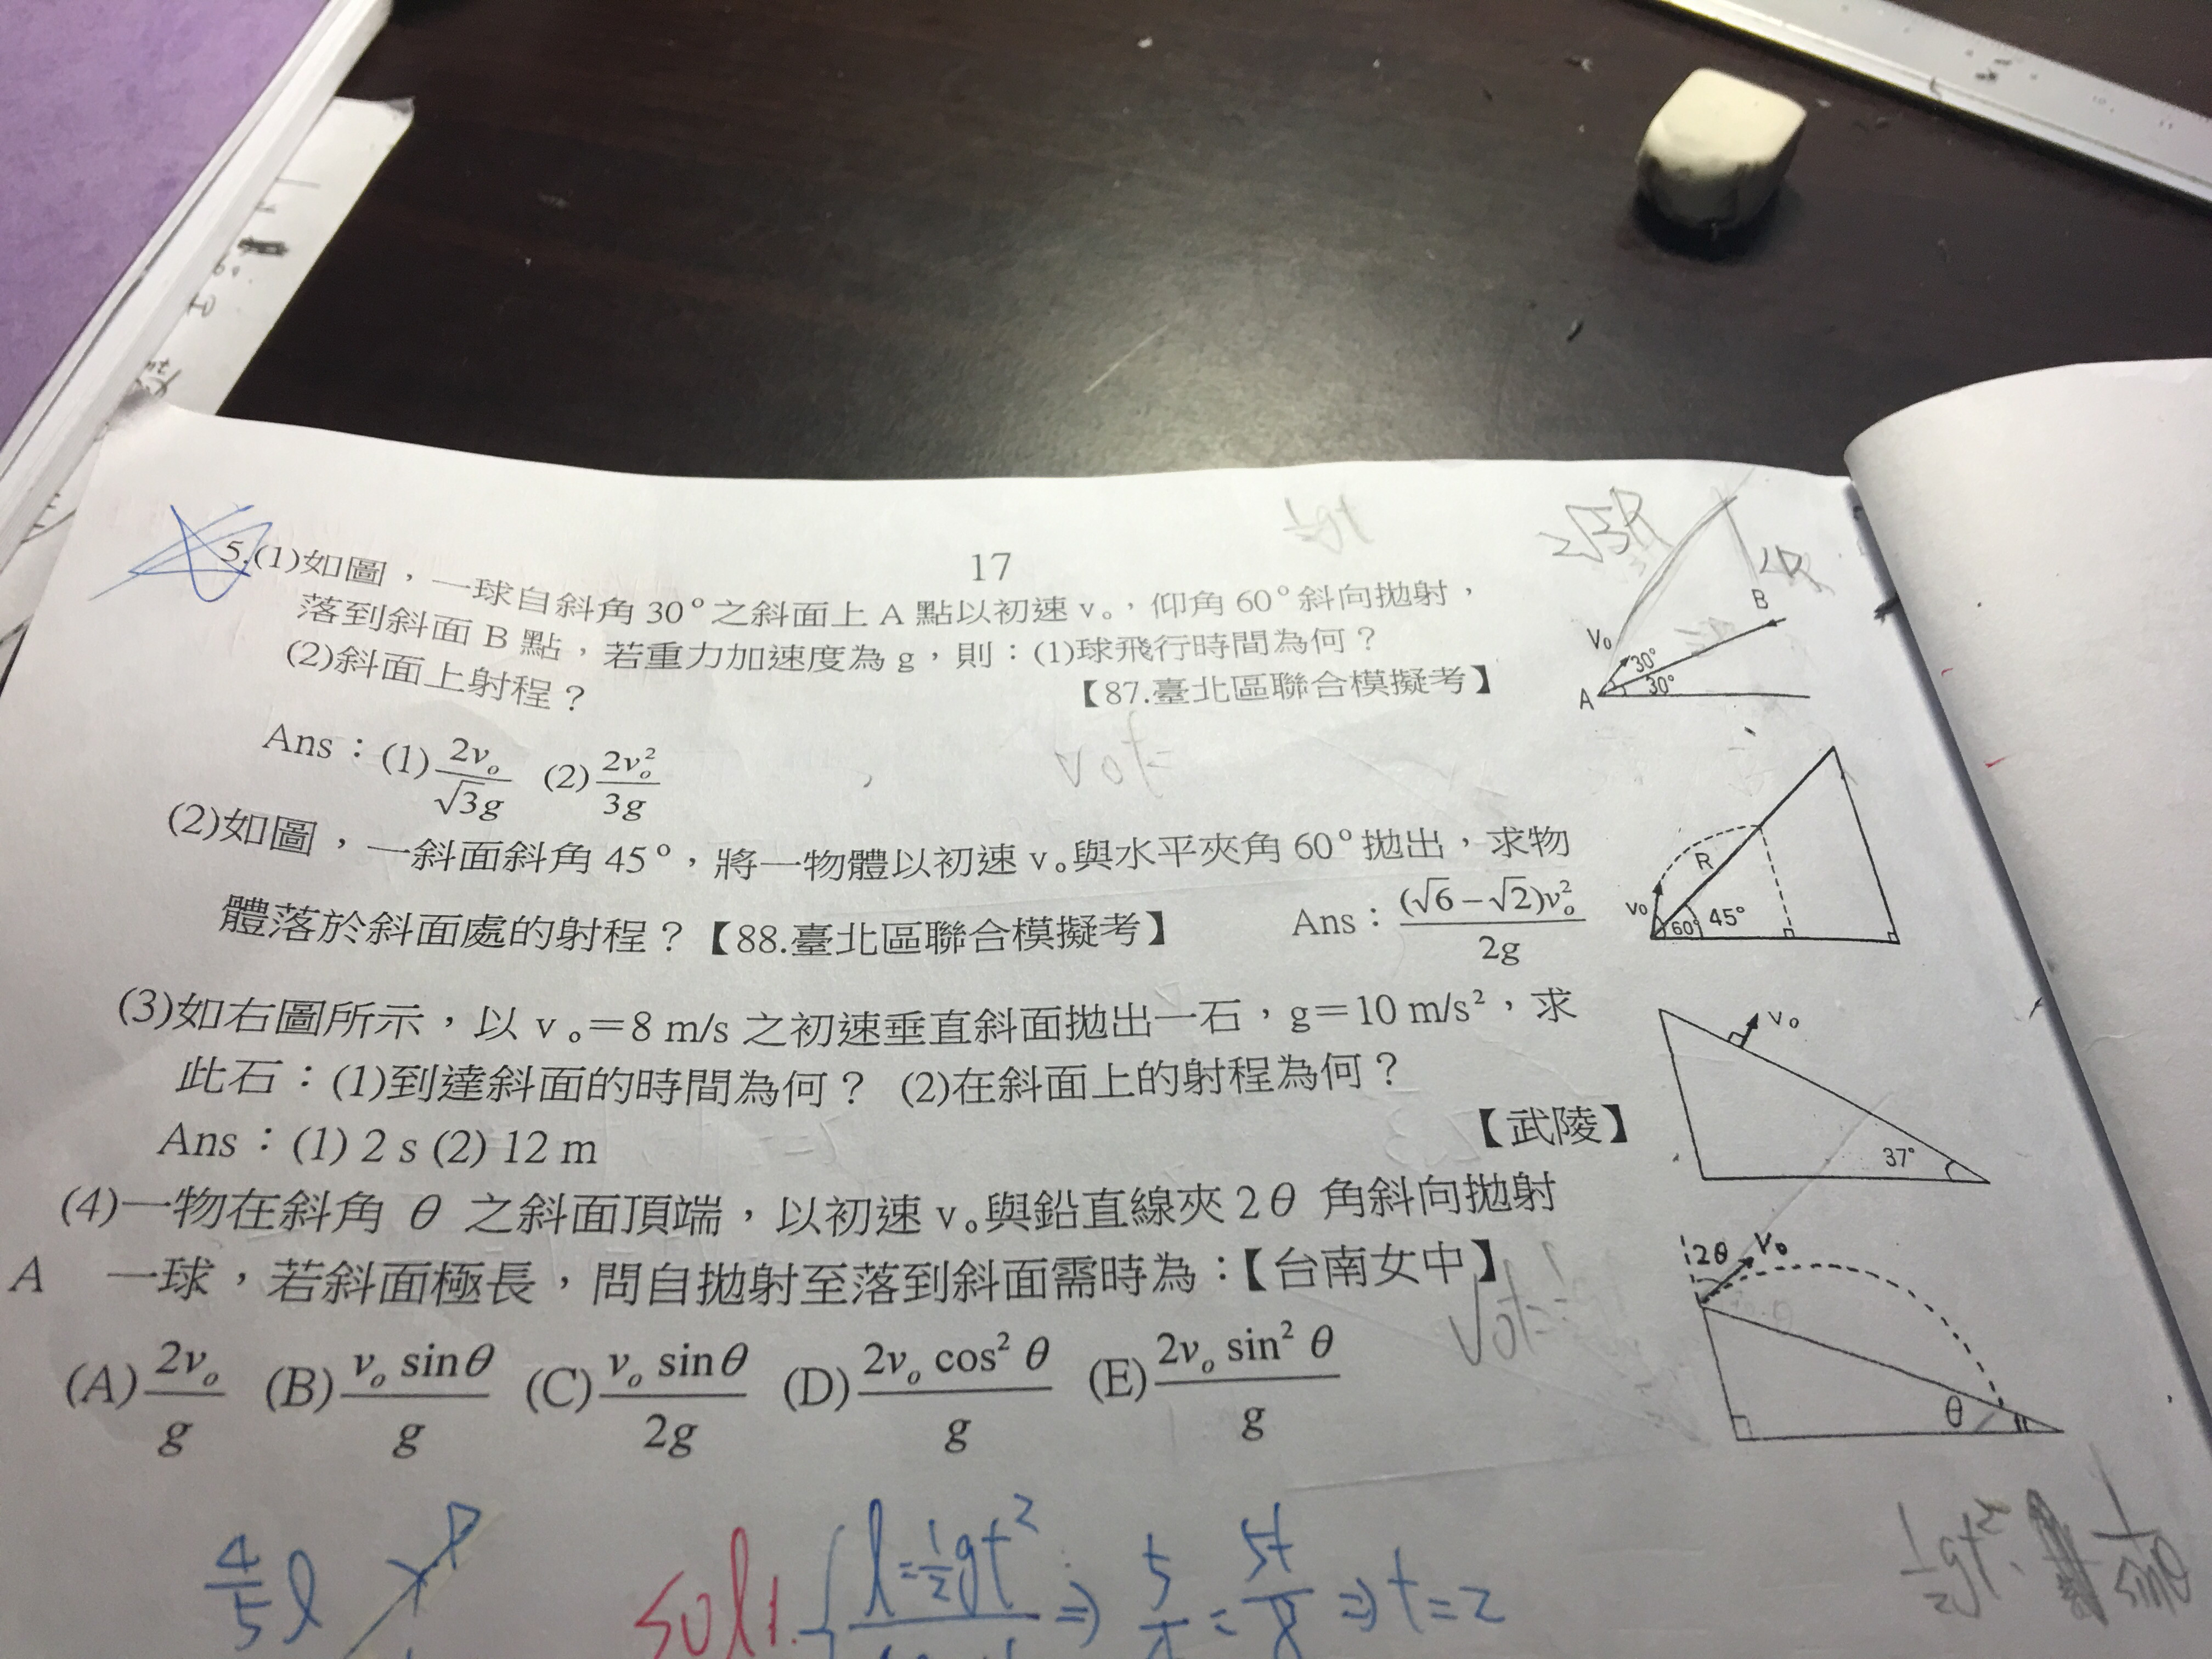 17
5.(1)如圖，一球自斜角30°之斜面上A點以初速v₀，仰角60°斜向拋射，
落到斜面B點，若重力加速度為g，則：(1)球飛行時間為何？
(2)斜面上射程？ 【87.臺北區聯合模擬考】
Ans：(1) 2v₀/√3g (2) 2v₀²/3g
2√3R
2R
B
V₀
30°
30°
A
(2)如圖，一斜面斜角45°，將一物體以初速v₀與水平夾角60°拋出，求物
體落於斜面處的射程？【88.臺北區聯合模擬考】 Ans：(√6−√2)v₀²/2g
R
V₀
60° 45°
(3)如右圖所示，以v₀＝8 m/s之初速垂直斜面拋出一石，g＝10 m/s²，求
此石：(1)到達斜面的時間為何？ (2)在斜面上的射程為何？
【武陵】
Ans：(1) 2 s (2) 12 m
V₀
37°
(4)一物在斜角 θ 之斜面頂端，以初速v₀與鉛直線夾2θ 角斜向拋射
A 一球，若斜面極長，問自拋射至落到斜面需時為：【台南女中】
(A) 2v₀/g (B) v₀ sinθ/g (C) v₀ sinθ/2g (D) 2v₀ cos² θ/g (E) 2v₀ sin² θ/g
2θ V₀
θ
4/5 l
sol1. { l=½gt² ⇒ 5/4 = 5t/8 ⇒ t=2